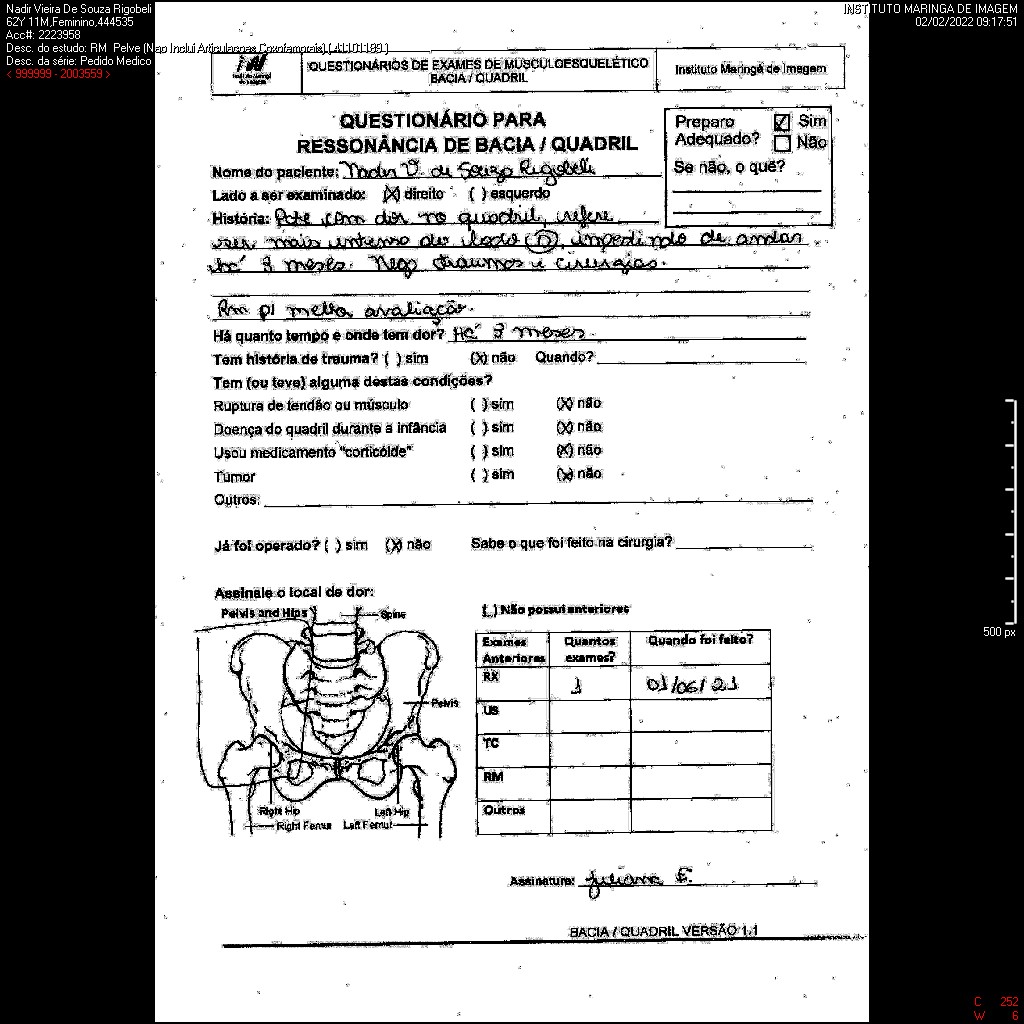 Nadir Vieira De Souza Rigobeli
62Y 11M,Feminino,444535
Acc#: 2223958
Desc. do estudo: RM Pelve (Nao Inclui Articulacoes Coxofemorais) ( 41101189 )
Desc. da série: Pedido Medico
< 999999 - 2003559 >
INSTITUTO MARINGA DE IMAGEM
02/02/2022 09:17:51
QUESTIONÁRIOS DE EXAMES DE MUSCULOESQUELÉTICO
BACIA / QUADRIL
Instituto Maringá de Imagem
QUESTIONÁRIO PARA
RESSONÂNCIA DE BACIA / QUADRIL
Preparo Adequado? (X) Sim
( ) Não
Se não, o quê?
Nome do paciente: Nadir V. de Souza Rigobeli
Lado a ser examinado: (X) direito ( ) esquerdo
História: Pcte com dor no quadril, refere
ser mais intenso do lado (D), impedindo de andar
há 8 meses. Nega traumas e cirurgias.
Rm p/ melhor avaliação.
Há quanto tempo e onde tem dor? Há 8 meses.
Tem história de trauma? ( ) sim (X) não Quando?
Tem (ou teve) alguma destas condições?
Ruptura de tendão ou músculo ( ) sim (X) não
Doença do quadril durante a infância ( ) sim (X) não
Usou medicamento "corticóide" ( ) sim (X) não
Tumor ( ) sim (X) não
Outros:
Já foi operado? ( ) sim (X) não Sabe o que foi feito na cirurgia?
Assinale o local de dor:
Pelvis and Hips
Spine
Pelvis
Right Hip
Left Hip
Right Femur
Left Femur
( ) Não possui anteriores
Exames Anteriores Quantos exames? Quando foi feito?
RX 1 01/06/21
US
TC
RM
Outros
Assinatura: Juliana E.
BACIA / QUADRIL VERSÃO 1.1
500 px
C 252
W 6